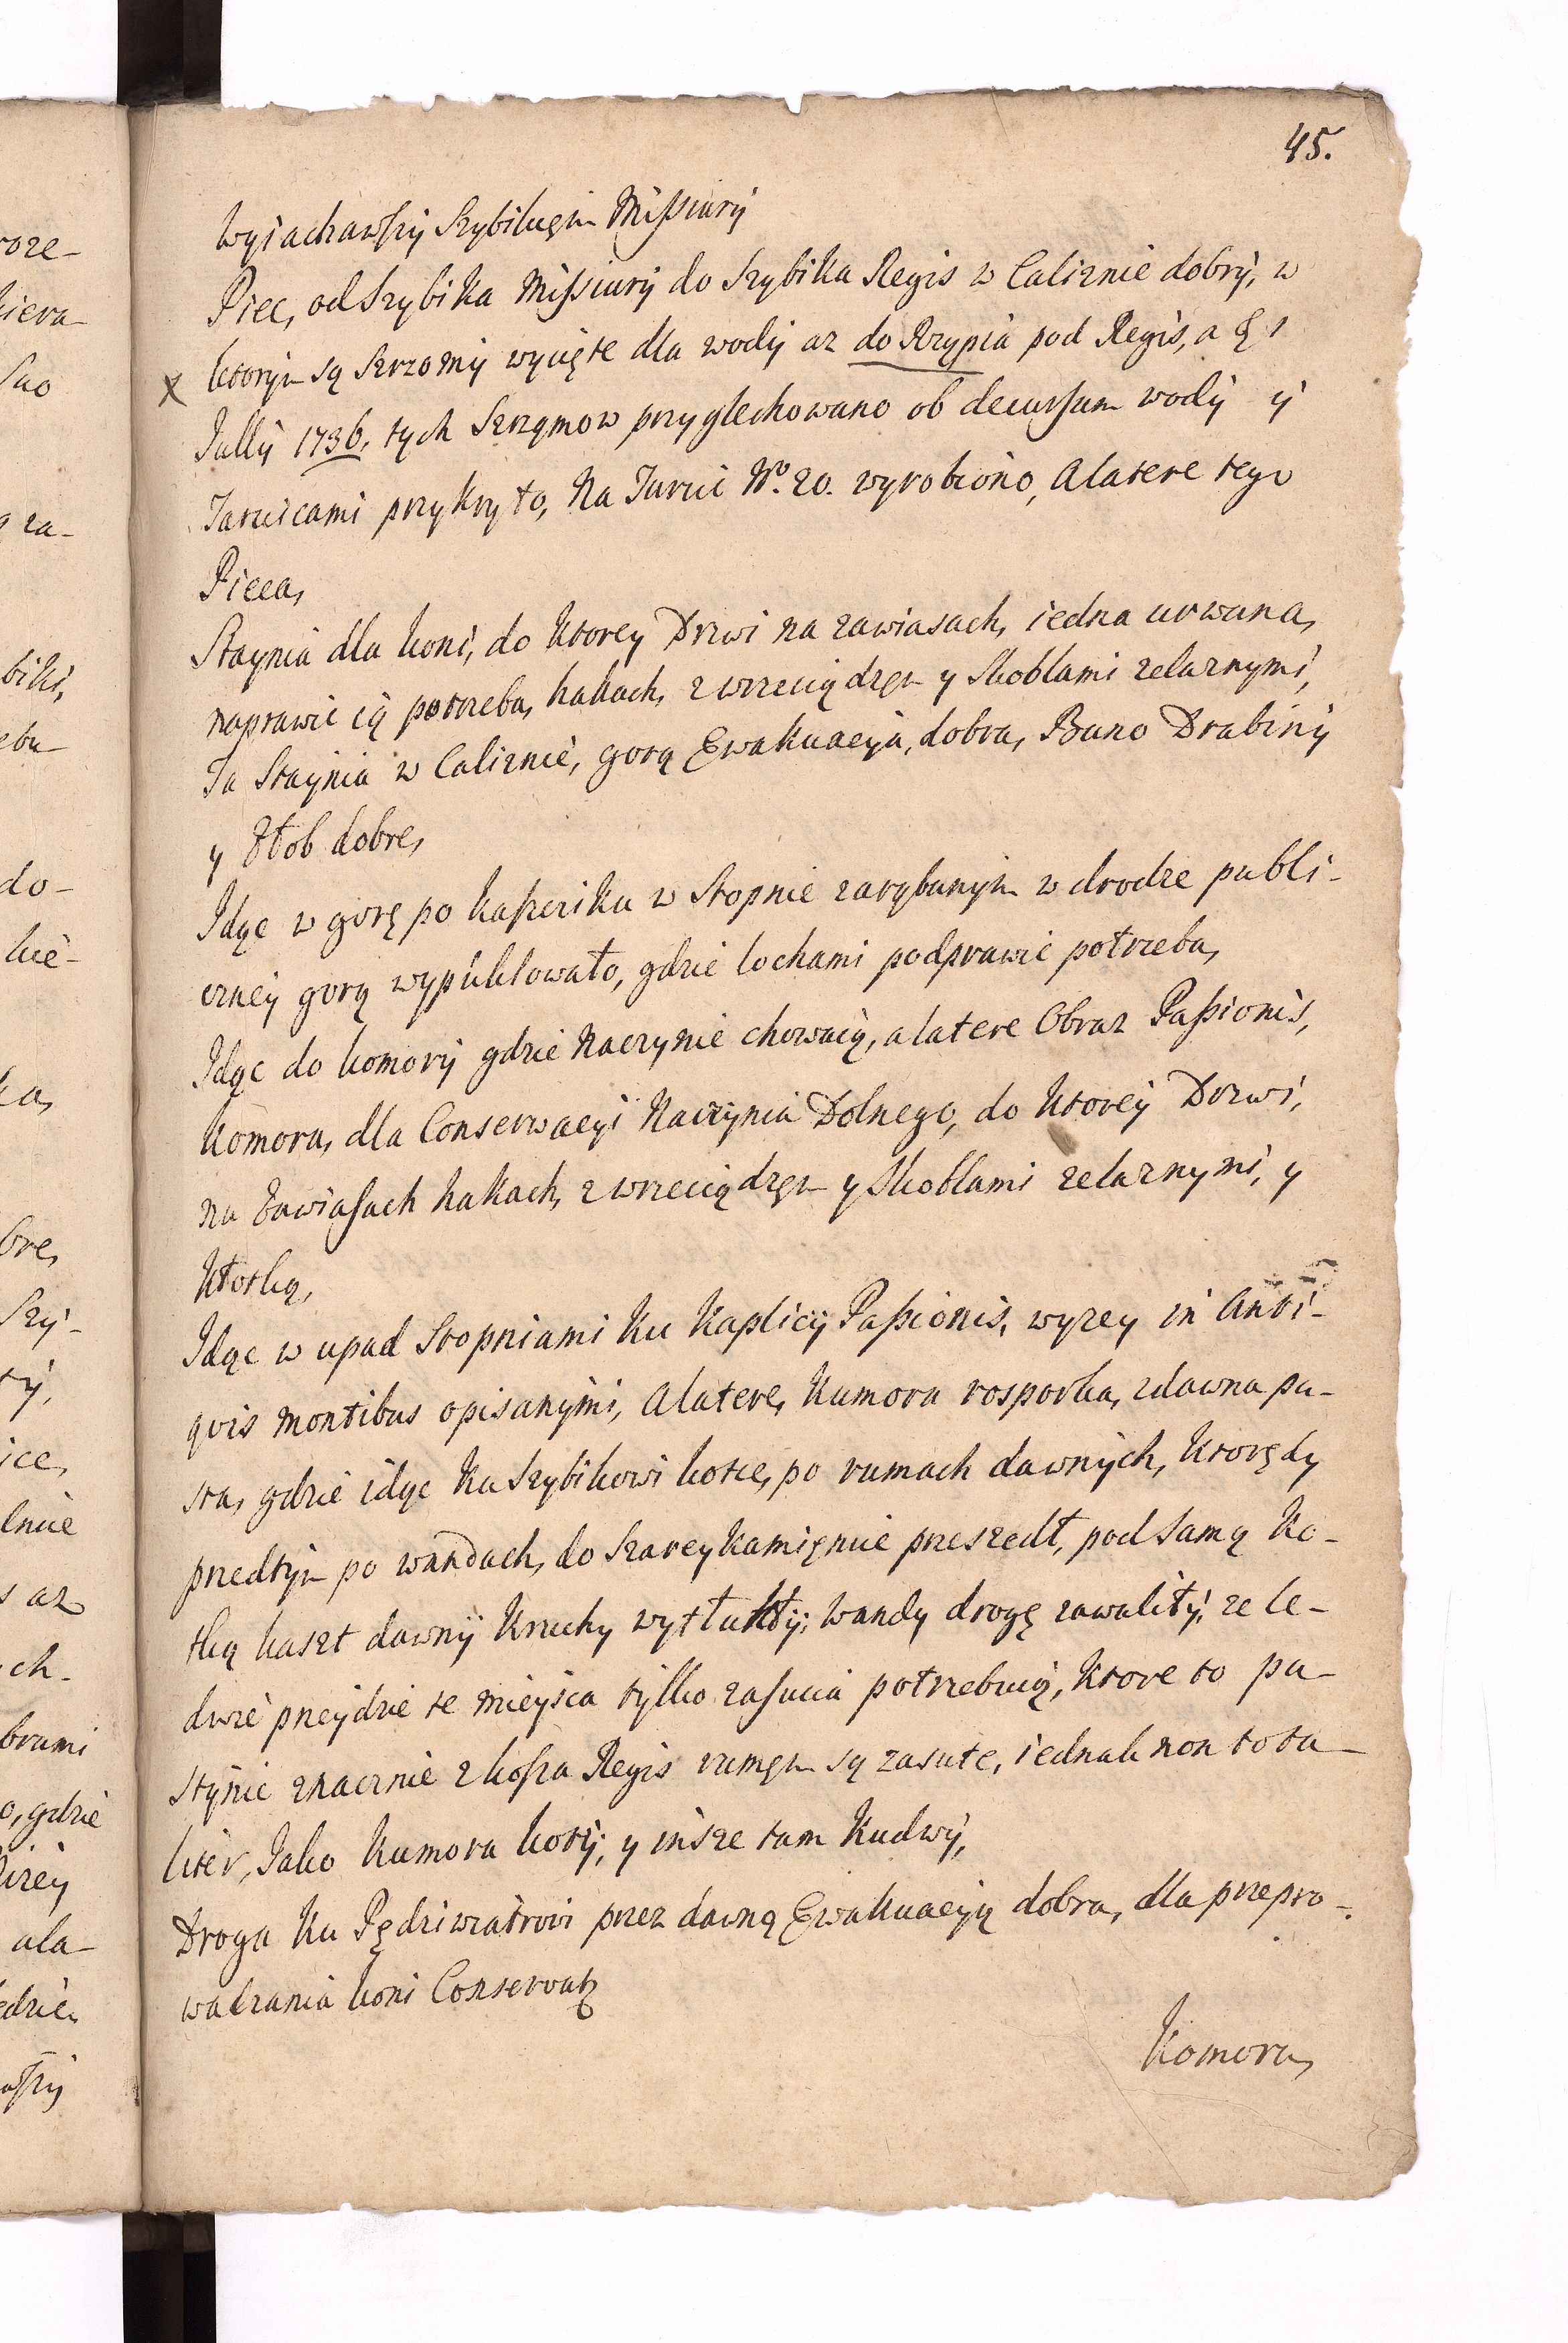 45.
Wyiachawszy Szybikiem Missiury
Piec, od Szybika Missiury do Szybika Regis w Caliznie dobry, w
ktorym są Szrzomy wycięte dla wody az do Rzypia pod Regis, a
X
Jully 1736, tych Szrzymow przyglechowano ob decursum wody y
Tarcicami przykryto, Na Turni No. 20. wyrobiono, A latere tego
Pieca,
Staynia dla koni, do Ktorey Drzwi na zawiasach, iedna urwana,
naprawic ią potrzeba, hakach, z wrzeciądzem y Skoblami zelaznymi,
Ta Staynia w Caliznie, gorą Ewakuacyia, dobra, Buno Drabiny
y Złob dobre,
Idąc w gorę po kaszciku w Stopnie zarąbanym w drodze publi-
czney gorą wypuklowało, gdzie lochami podprawic potrzeba,
Idąc do komory gdzie Naczynie chowaią, a latere Obraz Passionis,
Komora, dla Conserwacyi Naczynia Dolnego, do Ktorey Drzwi,
na Zawiasach hakach, z wrzeciądzem y Skoblami zelaznymi, y
Kłotką,
Idąc w upad Stopniami Ku Kaplicy Passionis, wyzey in Anti-
qvis montibus opisanymi, A latere, Kumora rosporka, zdawna pu-
sta, gdzie idąc Ku Szybikowi kotce, po rumach dawnych, Ktorędy
przedtym po wandach, do Szarey Kamięnice przeszedł, pod Samą Ko-
tką kaszt dawny Kruchy wytłukły, wandy drogę zawaliły, ze le-
dwie przeydzie te mieysca tylko zasucia potrzebuią, Ktore to pu-
stynie znacznie z kosza Regis rumem są zasute, iednak non tota-
liter, Jako Kumora koty, y insze tam Kudwy,
Droga Ku Pędziwiatrowi przez dawną Ewakuacyią dobra, dla przepro-
wadzania koni Conservatz
Komora,